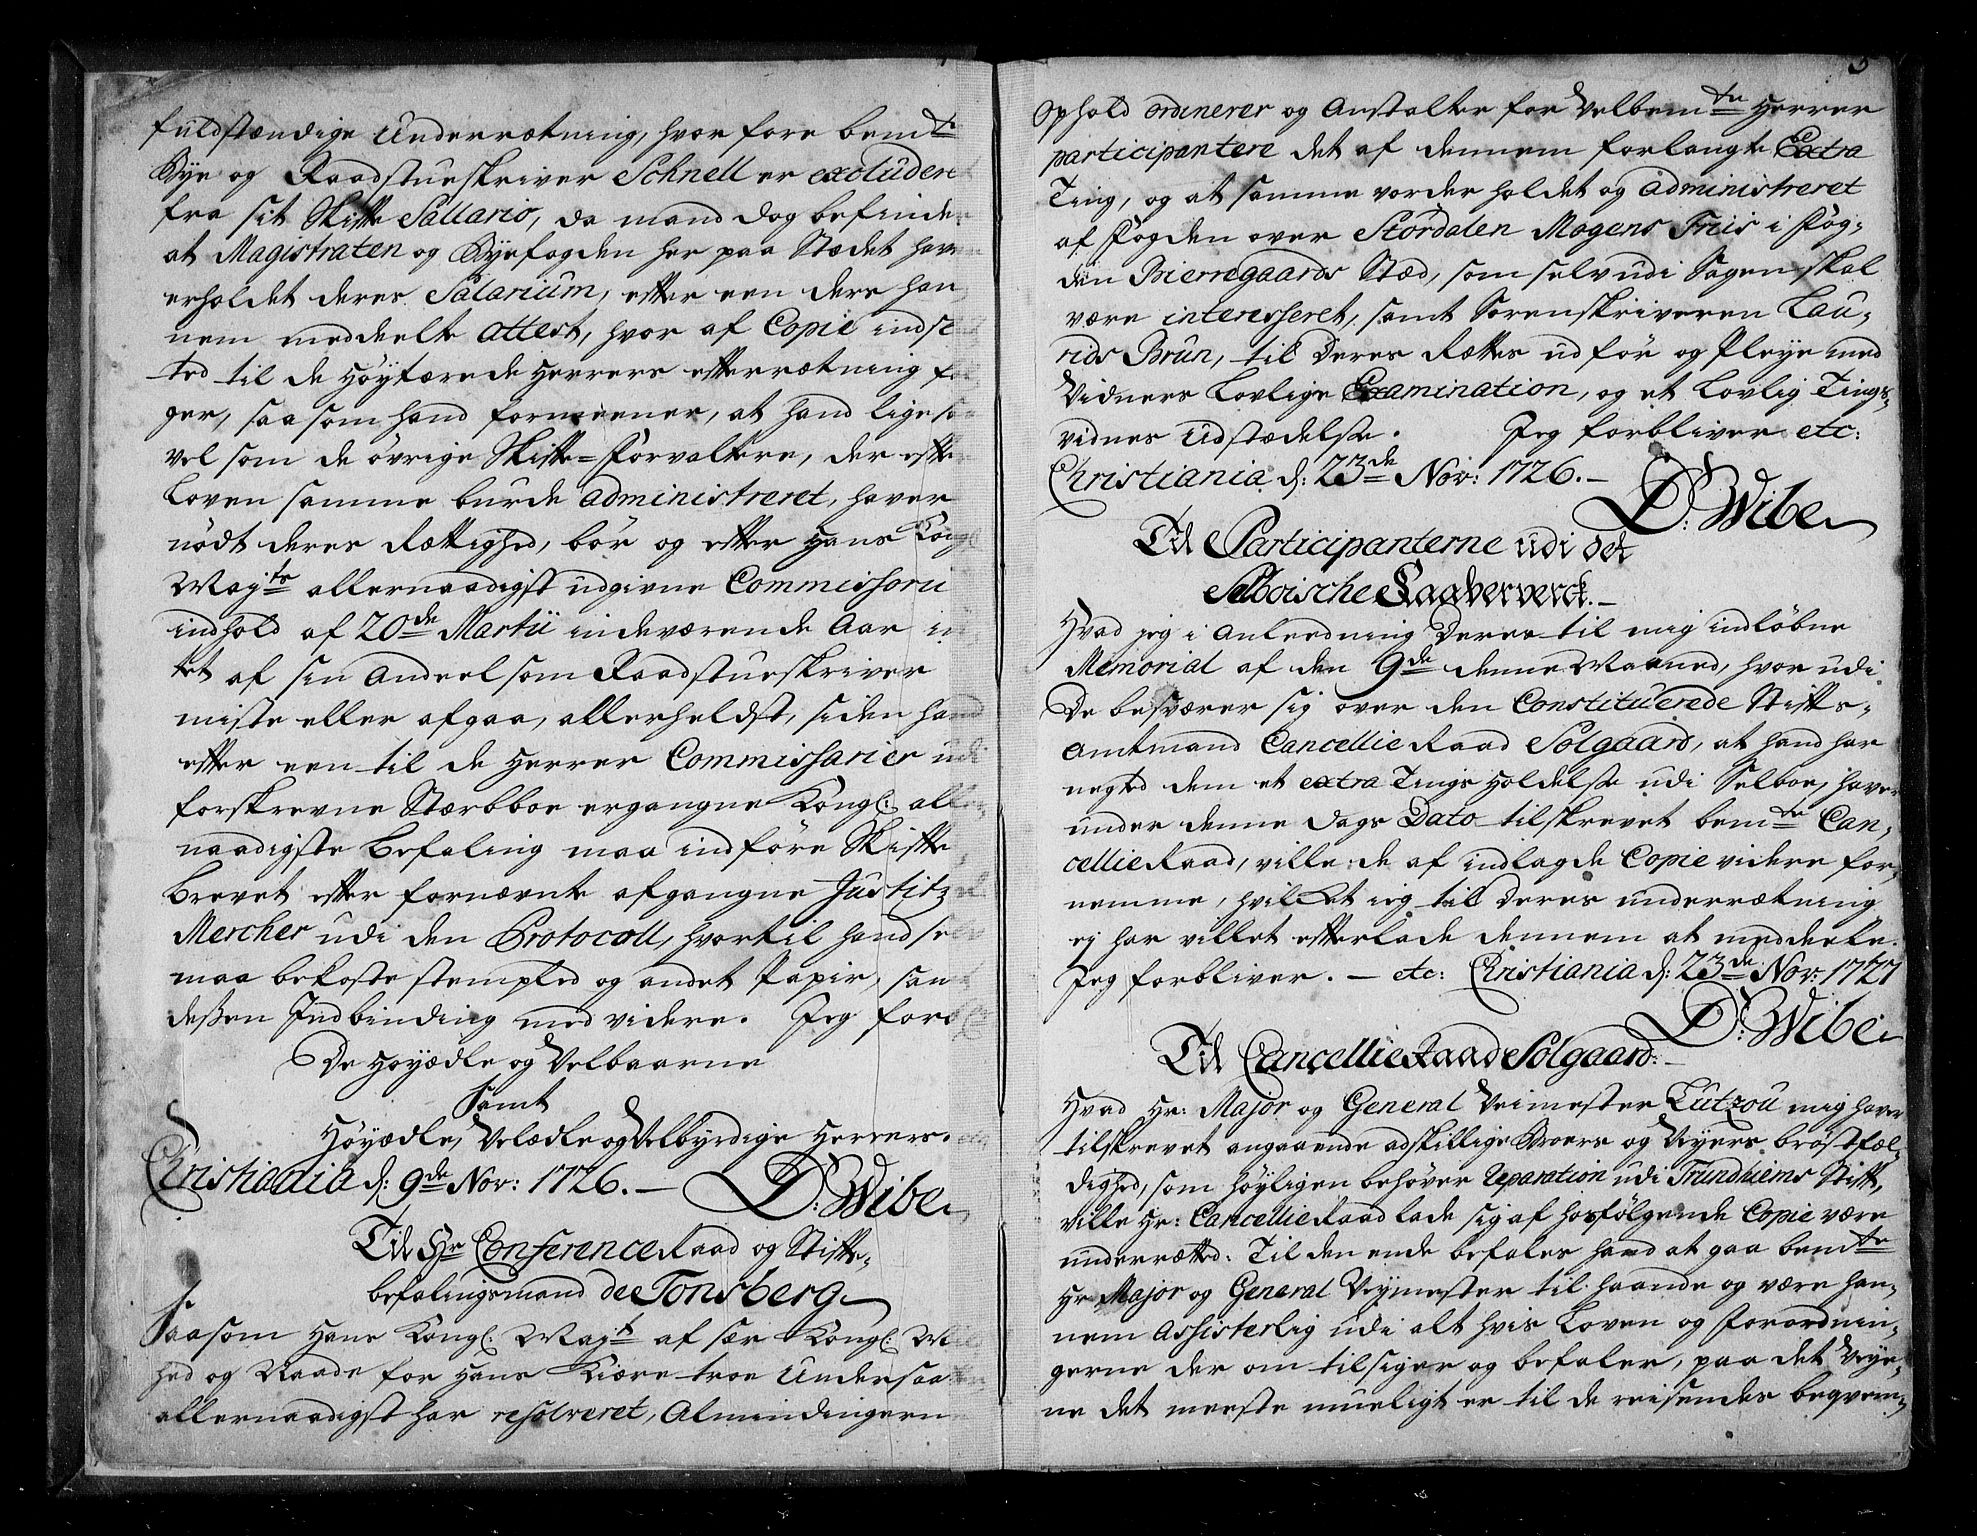 fuldstændige Underrætning, hvorfore bemte
Bye og Raadstueskriver Schnell er excluderet
fra sit Skifte Sallario, da mand dog befinder
at Magistraten og Byefogden her paa Stædet have
erholdet deres Salarium, efter een ders han
nem meddeelte Attest, hvor af Copie indst
ted til de Høytærede Herrers efterrætning føl
ger, saasom hand formeener, at hand ligesaa
vel som de øvrige Skifte=Forvaltere, der efter
Loven samme burde administreret, haver
nødt deres Rættighed, bør og efter Hans Kongl
Mayts allernaadigst udgivne Commissorii
indhold af 20de Martii indeværende Aar in
tet af sin Andeel som Raadstueskriver
miste eller afgaa, allerheldst, siden hand
efter een til de Herrer Commissarier udi
forskrevne Stærbboe ergangne Kongl: aller
naadigste Befaling maa indføre Skifte
Brevet efter fornævnte afgangne Justitz
Mercher udi den Protocoll, hvortil hand selv
maa bekoste stempled og andet Papir, samt
deßen Indbinding med videre. Jeg forbl
De Høyædle og Velbaarne
Samt
Høyædle, Velædle og Velbyrdige Herrers. etc
Christiania d: 9de Nov: 1726. - D: Wibe
Til Hr ConferenceRaad og Stifts-
befalingsmand de Tonsberg
Saasom Hans Kongl: Mayt af sær Kongl: Mild
hed og Naade for Hans Kiære troe Undersaatter
allernaadigst har resolveret, Almindingerne
5
Ophold ordinerer og Anstalter for Velbemte Herrer
participantere det af dennem forlangte Extra
Ting, og at samme vorder holdet og administreret
af Fogden over Stordalen Mogens Friis i Fog-
den Bierregaards Stæd, som selv udi Sagen skal
være interesseret, samt Sorenskriveren Lau-
rids Brun, til Deres Rættes udför og Pleye med
Vidners Lovlige Examination, og et Lovlig Tings-
vidnes Udstædelse. Jeg forbliver etc:
Christiania d: 23de Nov: 1726. -
D: Wibe
Til Participanterne udi det
Selboische Kaaberverck. -
Hvad jeg i Anleedning Deres til mig indløbne
Memorial af den 9de denne Maaned, hvor udi
De besværer sig over den Constituerede Stifts-
Amtmand CancellieRaad Solgaard, at hand har
negted dem et extra Tings Holdelse udi Selboe, haver
under denne Dags Dato tilskrevet bemte Can-
cellieRaad, ville de af indlagde Copie videre for-
nemme, hvilket jeg til Deres underrætning
ej har villet efterlade dennem at meddeele.
Jeg forbliver. - etc: Christiania d: 23de Nov: 1727
D: Wibe
Til CancellieRaad Solgaard: -
Hvad Hr: Major og General Veimester Lutzou mig haver
tilskrevet angaaende adskillige Broers og Veyers brøstfæl-
dighed, som høyligen behøver Reparation udi Trundhiems Stift,
ville Hr: CancellieRaad lade sig af hosfølgende Copie være
underrætted: Til den ende befales hand at gaa bemte
Hr Major og General Veymester til haande og være han-
nem Assisterlig udi alt hvis Loven og Forordnin-
gerne der om tilsiger og befaler, paa det Veye-
ne det meeste mueligt er til de reisendes beqvem-